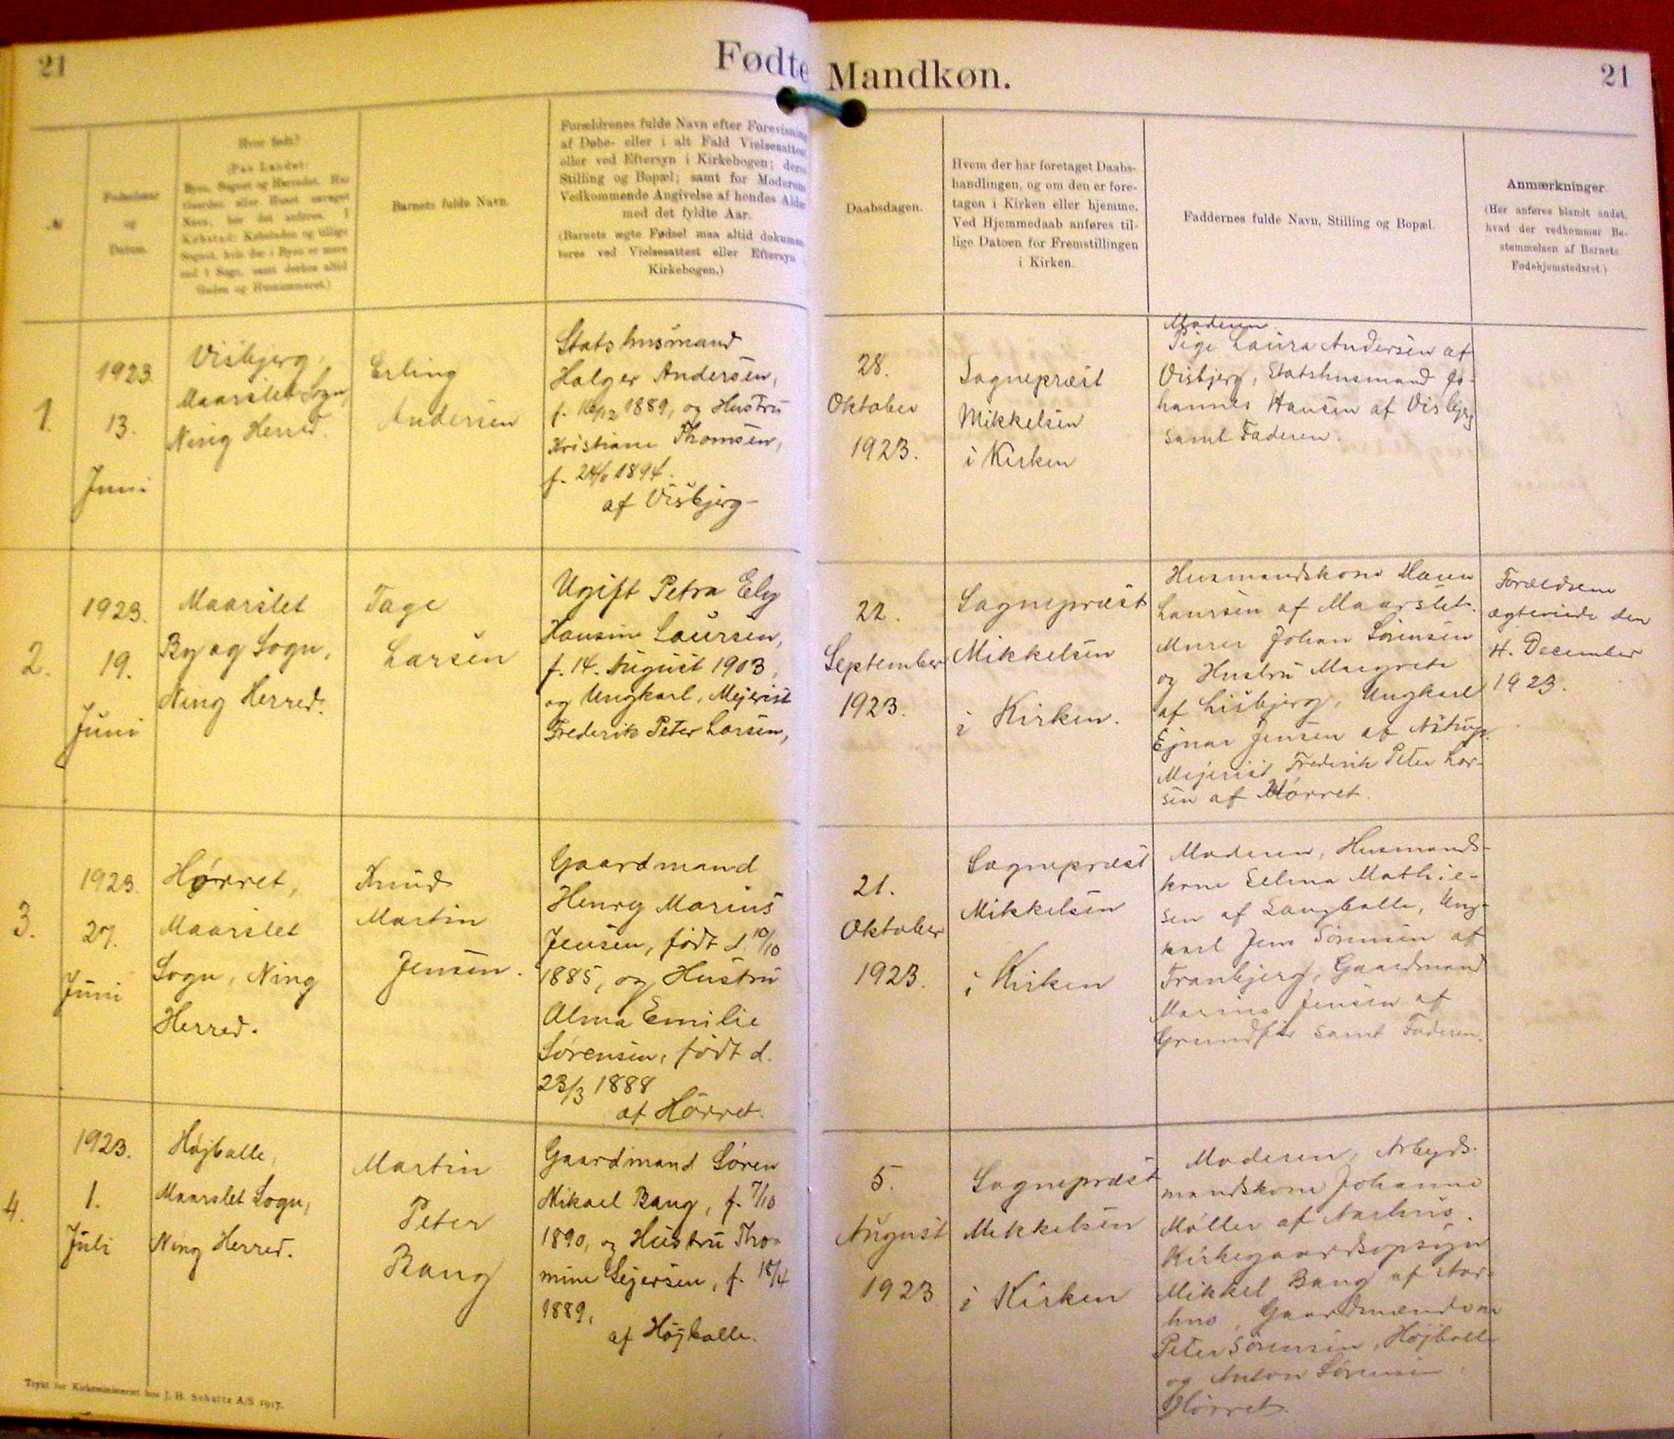 21
Fødte
Mandkøn.
21
№
Fødselsaar
og
Datum.
Hvor født?
(Paa Landet:
Byen, Sognet og Herredet. Har
Gaarden eller Huset særeget
Navn, bør det anføres. I
Købstad: Købstaden og tillige
Sognet, hvis der i Byen er mere
end 1 Sogn, samt derhos altid
Gaden og Husnummeret.)
Barnets fulde Navn.
Forældrenes fulde Navn efter Forevisning
af Døbe- eller i alt Fald Vielsesattest
eller ved Eftersyn i Kirkebogen; deres
Stilling og Bopæl; samt for Moderens
Vedkommende Angivelse af hendes Alder
med det fyldte Aar.
(Barnets ægte Fødsel maa altid dokumen-
teres ved Vielsesattest eller Eftersyn i
Kirkebogen.)
Daabsdagen.
Hvem der har foretaget Daabs-
handlingen, og om den er fore-
tagen i Kirken eller hjemme.
Ved Hjemmedaab anføres til-
lige Datoen for Fremstillingen
i Kirken.
Faddernes fulde Navn, Stilling og Bopæl.
Anmærkninger
(Her anføres blandt andet,
hvad der vedkommer Be-
stemmelsen af Barnets
Fødehjemstedsret.)
1.
1923
13.
Juni
Visbjerg,
Maarslet Sogn,
Ning Herred.
Erling
Andersen
Statshusmand
Holger Andersen,
1889, og Hustru
Kristiane Thomsen,
1894.
af Visbjerg
28.
Oktober
1923.
Sognepræst
Mikkelsen
i Kirken
Moderen
Pige Laura Andersen af
Visbjerg, Statshusmand Jo-
hannes Hansen af Visbjerg
samt Faderen.
2.
1923.
19.
Juni
Maarslet
By og Sogn,
Ning Herred.
Tage
Larsen
Ugift Petra Ely
Hansine Laursen,
f. 14. August 1903,
og Ungkarl, Mejerist
Frederik Peter Larsen,
22.
September
1923.
Sognepræst
Mikkelsen
i Kirken.
Husmandskone Maren
Laursen af Maarslet.
Murer Johan Sørensen
og Hustru Margrete
af Lisbjerg, Ungkarl
Ejnar Jensen af Astrup.
Mejerist Frederik Peter Lar-
sen af Hørret.
Forældrene
ægteviede den
4. December
1923.
3.
1923.
27.
Juni
Hørret,
Maarslet
Sogn, Ning
Herred.
Knud
Martin
Jensen.
Gaardmand
Henry Marius
Jensen, født d. 10/10
1885, og Hustru
Alma Emilie
Sørensen, født d.
23/3 1888
af Hørret.
21.
Oktober
1923.
Sognepræst
Mikkelsen
i Kirken
Moderen, Husmands-
kone Selma Mathie-
sen af Langballe, Ung-
karl Jens Sørensen af
Tranbjerg, Gaardmand
Marius Jensen af
Grundfør samt Faderen.
4.
1923.
1.
Juli
Højballe,
Maarslet Sogn,
Ning Herred.
Martin
Peter
Bang
Gaardmand Søren
Mikael Bang, f. 7/10
1890, og Hustru Tho-
mine Sejersen, f. 18/4
1889,
af Højballe.
5.
August
1923
Sognepræst
Mikkelsen
i Kirken
Moderen, Arbejds-
mandskone Johanne
Møller af Aarhus.
Kirkegaardsopsyn
Mikkel Bang af Aar-
hus, Gaardmændene
Peter Sørensen, Højballe
og Anton Sørensen,
Hørret.
Trykt for Kirkeministeriet hos J. H. Schultz A/S 1917.